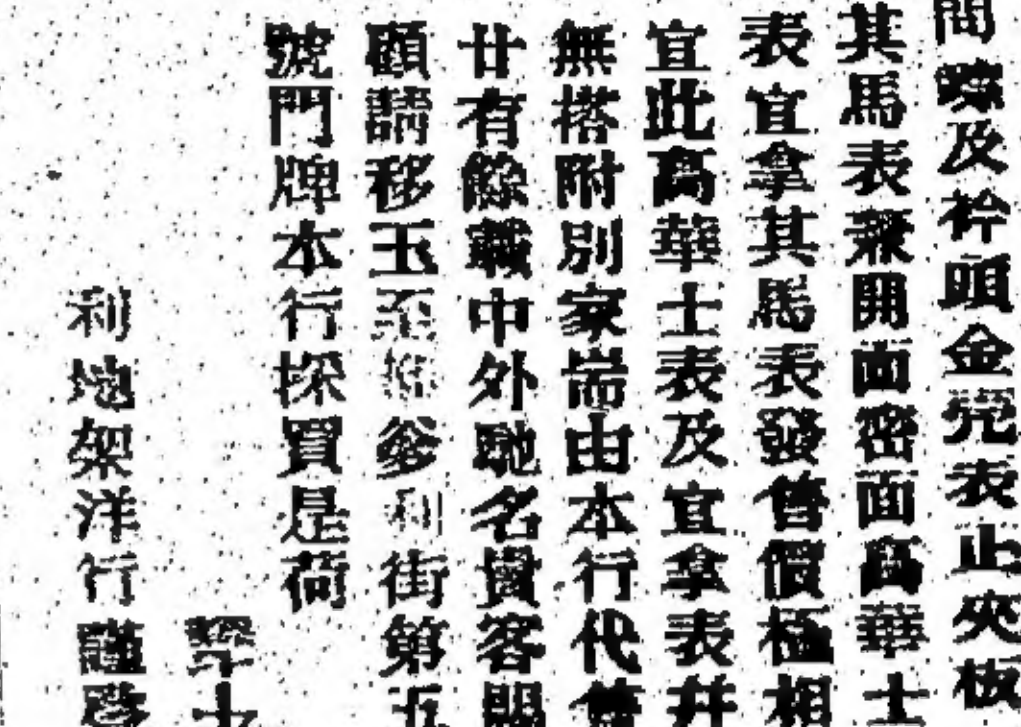 間嚟及衿頭金壳表止夾板
其馬表兼開面密面啇華士
表宜拿其馬表發售價極相
宜此啇華士表及宜拿表幷
無搭附別家耑由本行代
廿有餘載中外馳名貴客賜
顧請移玉至 爹利街第五
號門牌本行採買是荷
利地架洋行謹啓